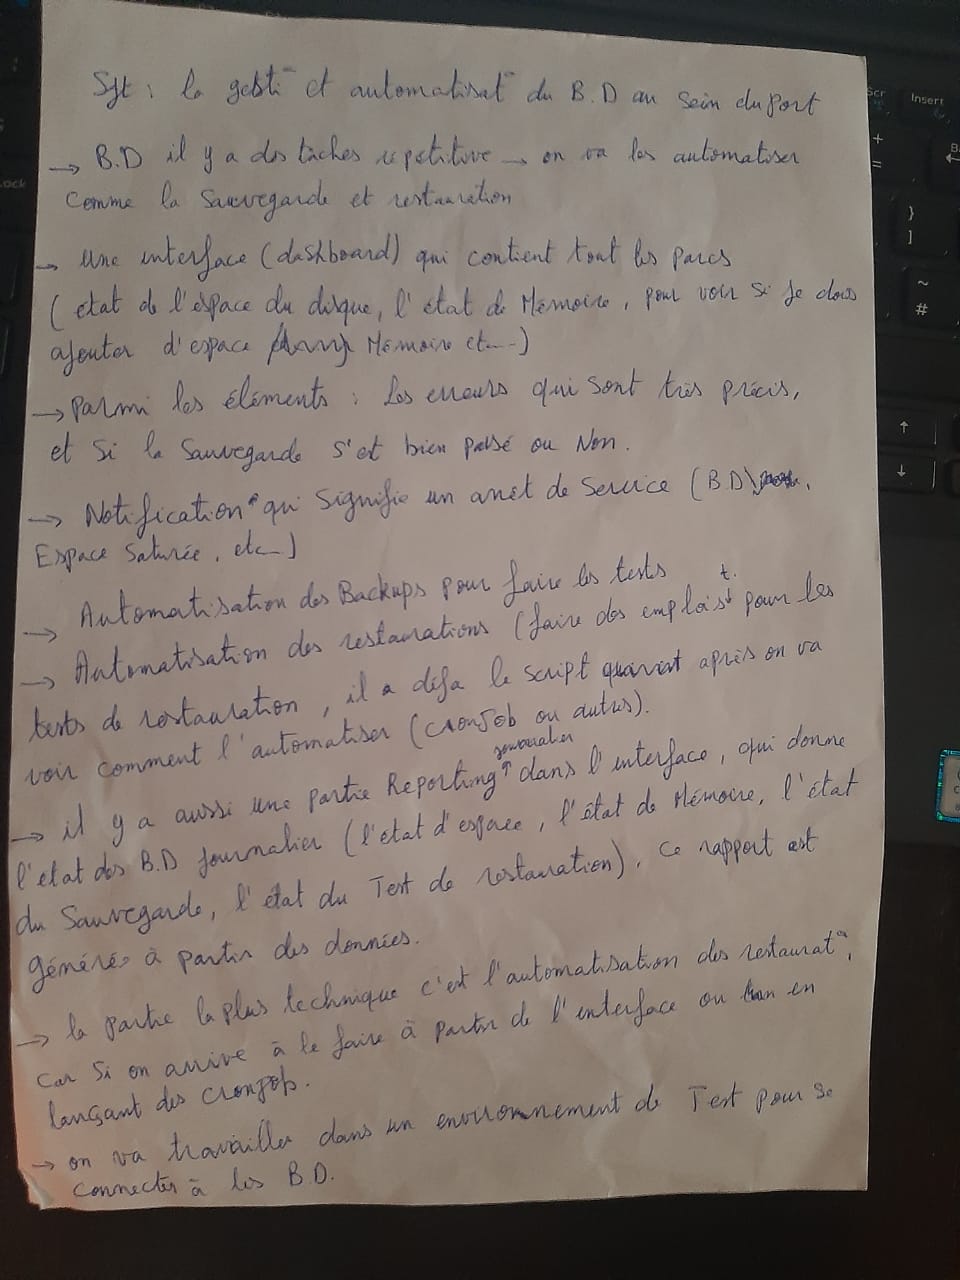 Sjt : la gesti° et automatisat° du B.D au sein du port
→ B.D il y a des tâches repetitive → on va les automatiser
comme la Sauvegarde et restauration
→ Une interface (dashboard) qui contient tout les parcs
( état de l'espace du disque, l'état de Mémoire, pour voir si je dois
ajouter d'espace Mémoire etc...)
→ Parmi les éléments : Les erreurs qui sont très précis,
et si la Sauvegarde s'est bien passé ou Non.
→ Notification qui signifie un arrêt de service (B.D),
Espace Saturée, etc...)
→ Automatisation des Backups pour faire les tests
→ Automatisation des restaurations (faire des emplois t. pour les
tests de restauration, il a déja le script après on va
voir comment l'automatiser (cronjob ou autres).
→ il y a aussi une partie Reporting journalier dans l'interface, qui donne
l'etat des B.D journalier (l'etat d'espace, l'état de Mémoire, l'état
du Sauvegarde, l'état du Test de restauration). ce rapport est
générés à partir des données.
→ la partie la plus technique c'est l'automatisation des restaurat°,
car si on arrive à le faire à partir de l'interface ou en
lançant des cronjob.
→ on va travailler dans un environnement de Test pour se
connecter à les B.D.
Scr
Insert
Lock
+
=
}
]
~
#
↑
↓